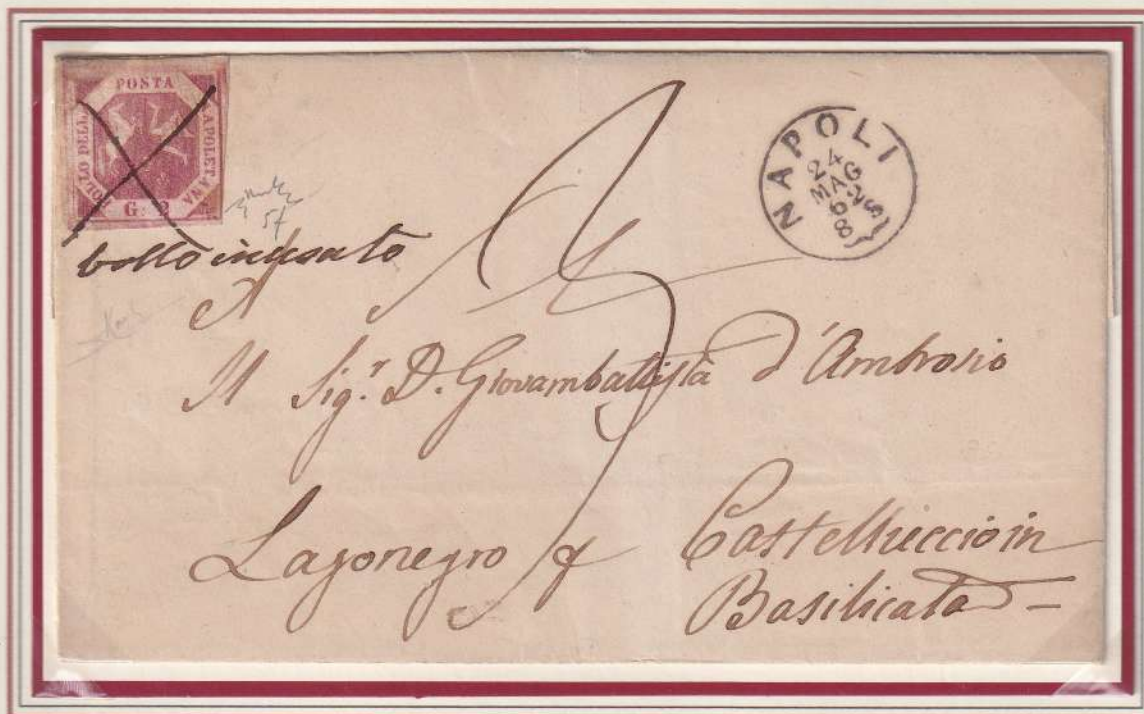 POSTA
BOLLO DELLA
NAPOLETANA
G. 2
57
bollo inusato
NAPOLI
24
MAG
62
8 S
A
Il Sig.r D. Giovambattista d'Ambrosio
Lagonegro p Castelluccio in
Basilicata